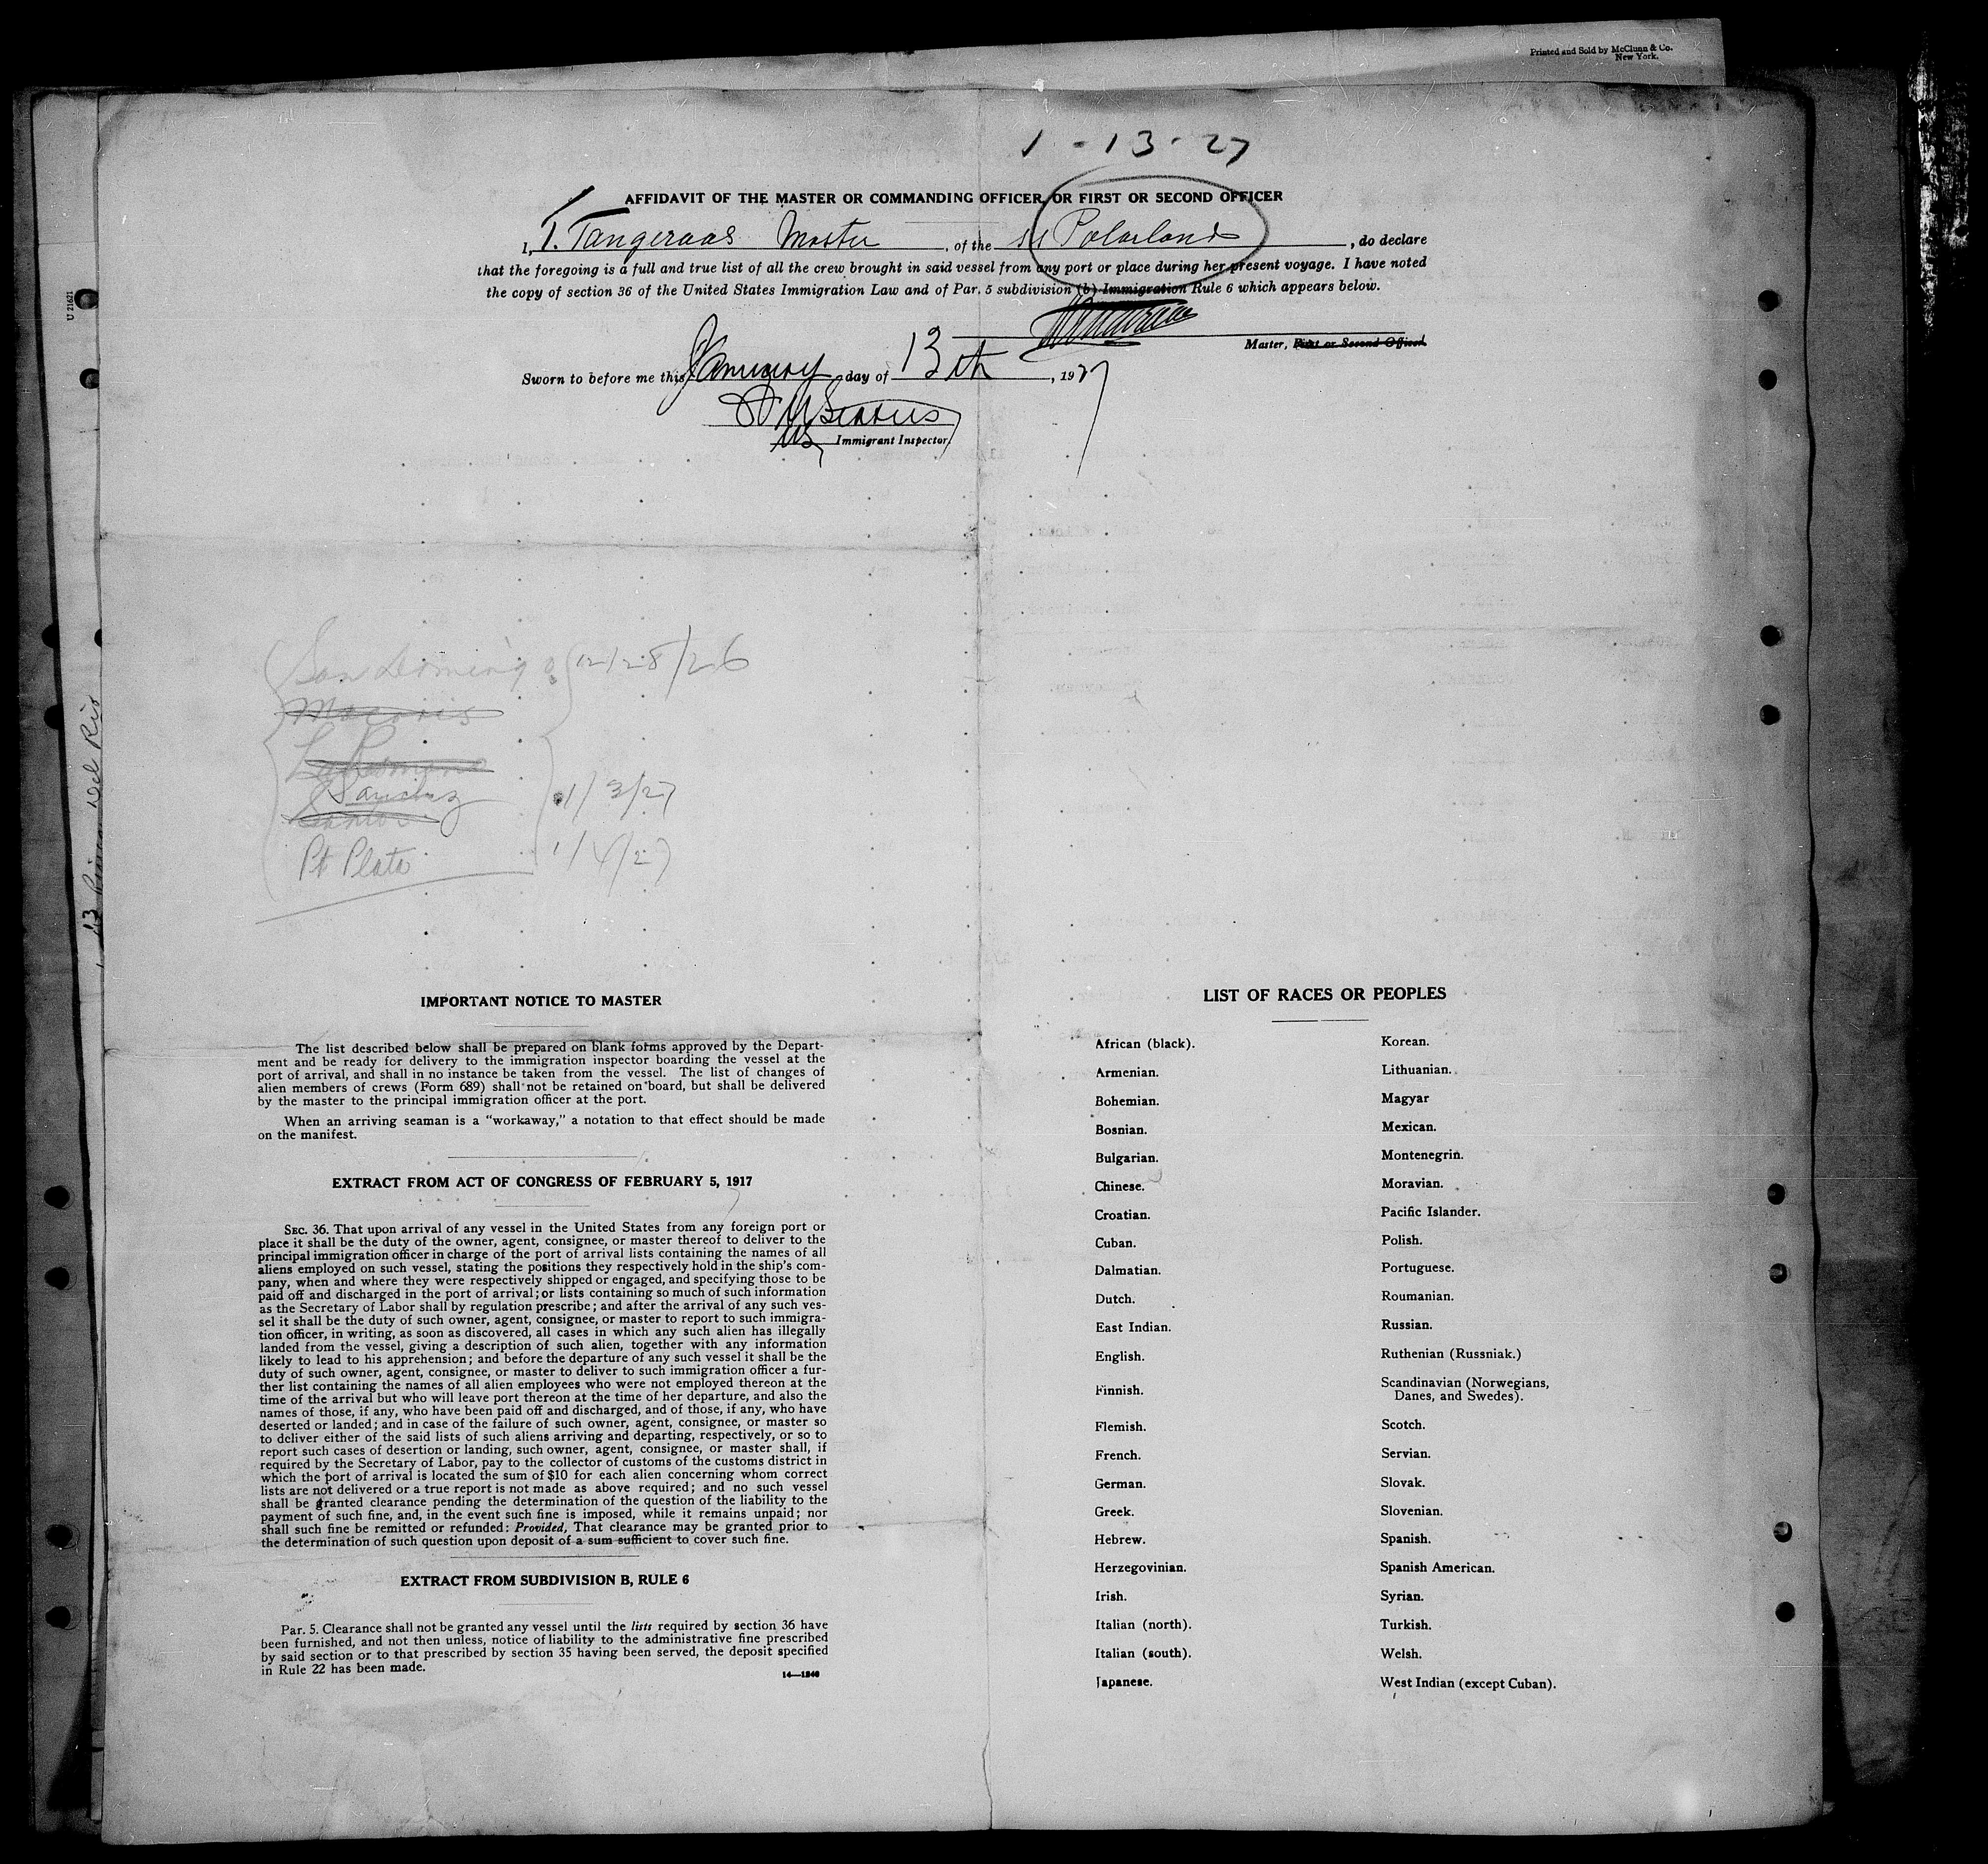 Printed and Sold by McClunn & Co.
New York.
1-13-27
AFFIDAVIT OF THE MASTER OR COMMANDING OFFICER, OR FIRST OR SECOND OFFICER
I, T. Tangeraas Master, of the SS Polarland, do declare
that the foregoing is a full and true list of all the crew brought in said vessel from any port or place during her present voyage. I have noted
the copy of section 36 of the United States Immigration Law and of Par. 5 subdivision (b) Immigration Rule 6 which appears below.
Master, First or Second Officer.
Sworn to before me this January day of 13th, 1927
Immigrant Inspector
U 21671
San Domingo 12/28/26
Macoris
La Romana
Sanchez 1/3/27
Pt Plata 1/4/27
IMPORTANT NOTICE TO MASTER
The list described below shall be prepared on blank forms approved by the Depart-
ment and be ready for delivery to the immigration inspector boarding the vessel at the
port of arrival, and shall in no instance be taken from the vessel. The list of changes of
alien members of crews (Form 689) shall not be retained on board, but shall be delivered
by the master to the principal immigration officer at the port.
When an arriving seaman is a "workaway," a notation to that effect should be made
on the manifest.
EXTRACT FROM ACT OF CONGRESS OF FEBRUARY 5, 1917
SEC. 36. That upon arrival of any vessel in the United States from any foreign port or
place it shall be the duty of the owner, agent, consignee, or master thereof to deliver to the
principal immigration officer in charge of the port of arrival lists containing the names of all
aliens employed on such vessel, stating the positions they respectively hold in the ship's com-
pany, when and where they were respectively shipped or engaged, and specifying those to be
paid off and discharged in the port of arrival; or lists containing so much of such information
as the Secretary of Labor shall by regulation prescribe; and after the arrival of any such ves-
sel it shall be the duty of such owner, agent, consignee, or master to report to such immigra-
tion officer, in writing, as soon as discovered, all cases in which any such alien has illegally
landed from the vessel, giving a description of such alien, together with any information
likely to lead to his apprehension; and before the departure of any such vessel it shall be the
duty of such owner, agent, consignee, or master to deliver to such immigration officer a fur-
ther list containing the names of all alien employees who were not employed thereon at the
time of the arrival but who will leave port thereon at the time of her departure, and also the
names of those, if any, who have been paid off and discharged, and of those, if any, who have
deserted or landed; and in case of the failure of such owner, agent, consignee, or master so
to deliver either of the said lists of such aliens arriving and departing, respectively, or so to
report such cases of desertion or landing, such owner, agent, consignee, or master shall, if
required by the Secretary of Labor, pay to the collector of customs of the customs district in
which the port of arrival is located the sum of $10 for each alien concerning whom correct
lists are not delivered or a true report is not made as above required; and no such vessel
shall be granted clearance pending the determination of the question of the liability to the
payment of such fine, and, in the event such fine is imposed, while it remains unpaid; nor
shall such fine be remitted or refunded: Provided, That clearance may be granted prior to
the determination of such question upon deposit of a sum sufficient to cover such fine.
EXTRACT FROM SUBDIVISION B, RULE 6
Par. 5. Clearance shall not be granted any vessel until the lists required by section 36 have
been furnished, and not then unless, notice of liability to the administrative fine prescribed
by said section or to that prescribed by section 35 having been served, the deposit specified
in Rule 22 has been made.
14—1240
LIST OF RACES OR PEOPLES
African (black).
Armenian.
Bohemian.
Bosnian.
Bulgarian.
Chinese.
Croatian.
Cuban.
Dalmatian.
Dutch.
East Indian.
English.
Finnish.
Flemish.
French.
German.
Greek.
Hebrew.
Herzegovinian.
Irish.
Italian (north).
Italian (south).
Japanese.
Korean.
Lithuanian.
Magyar
Mexican.
Montenegrin.
Moravian.
Pacific Islander.
Polish.
Portuguese.
Roumanian.
Russian.
Ruthenian (Russniak.)
Scandinavian (Norwegians,
Danes, and Swedes).
Scotch.
Servian.
Slovak.
Slovenian.
Spanish.
Spanish American.
Syrian.
Turkish.
Welsh.
West Indian (except Cuban).